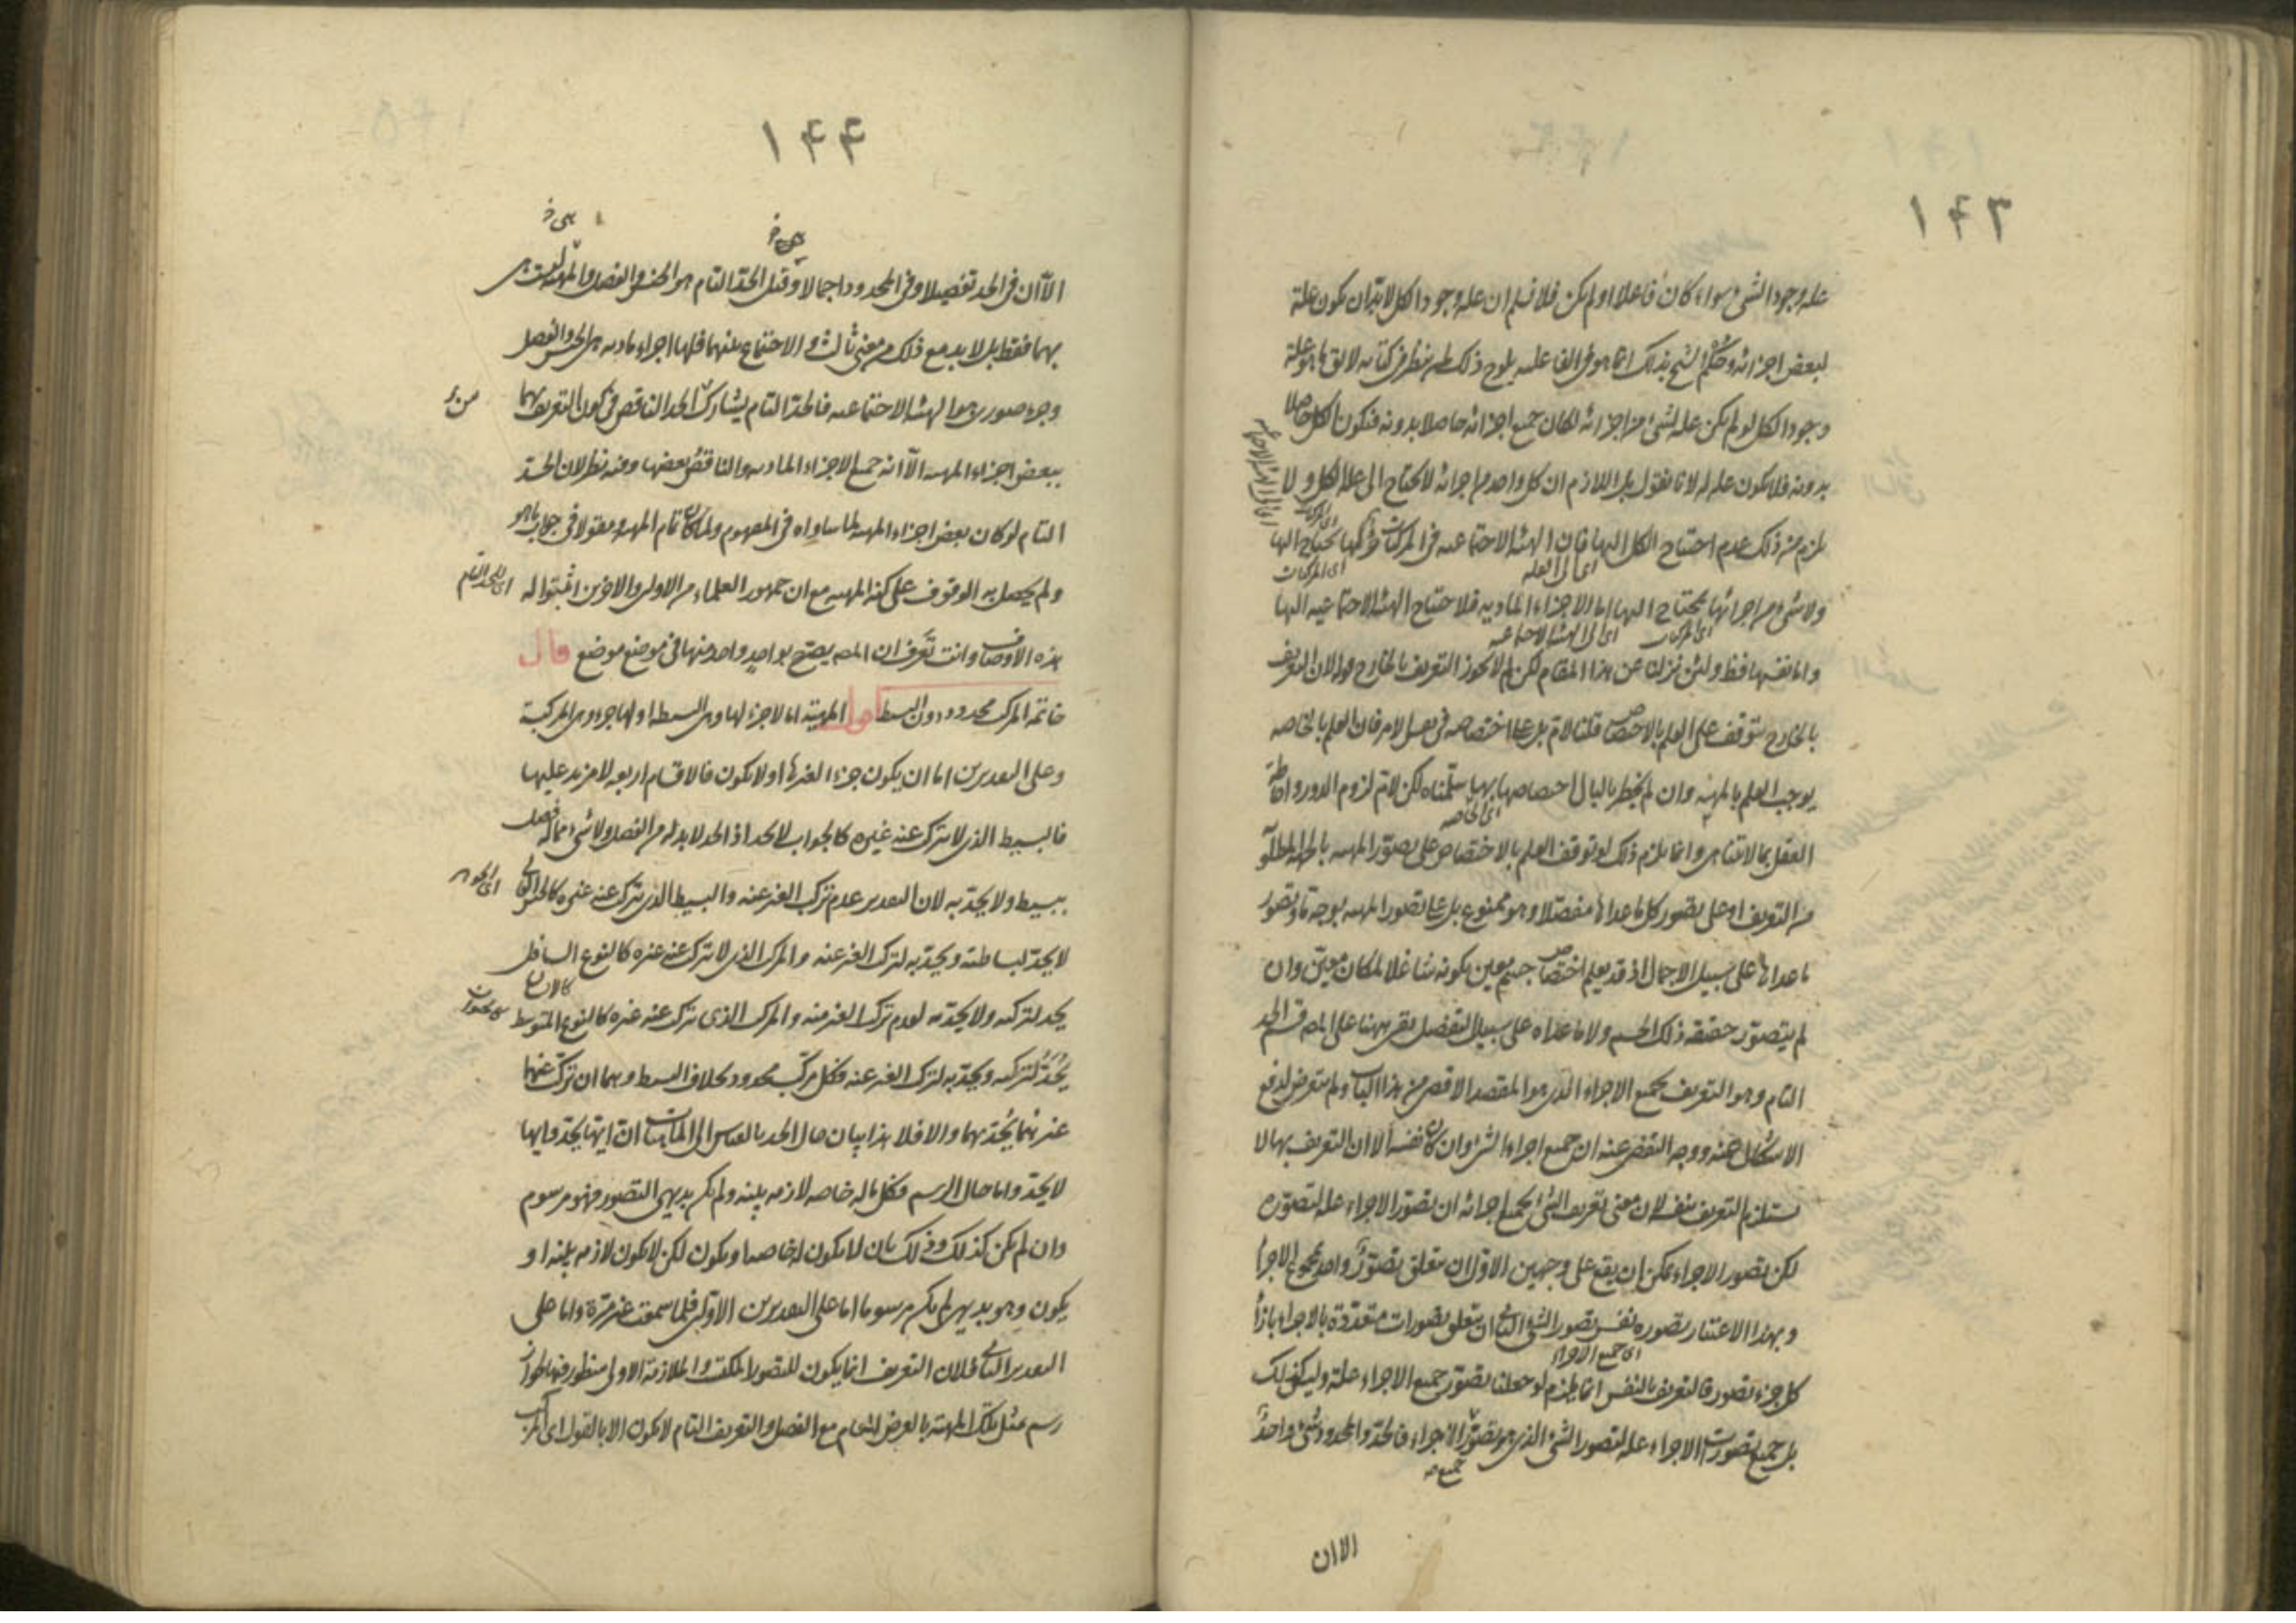 ١٤٣
علة وجود الشئ سواء كان فاعلا او لم يكن فلا نسلم ان علة وجود الكل لابد ان يكون علة
لبعض اجزائه وحكم الشيخ بذلك انما هو فى الفاعلية يلوح ذلك لمن نظر فى كتابه لا يق ما هو علة
وجود الكل لو لم يكن علة لشئ من اجزائه لكان جميع اجزائه حاصلا بدونه فتكون الكل حاصلا
بدونه فلا يكون علة له لانا نقول بل اللازم ان كل واحد من اجزائه لا يحتاج الى علة الكل ولا
يلزم من ذلك عدم احتياج الكل اليها فان الهيئة الاجتماعية فى المركبات يحتاج اليها
اى الى العلة
اى المركبات
ولا شئ من اجزائها يحتاج اليها اما الاجزاء المادية فلاحتياج الهيئة الاجتماعية اليها
اى المركبات
اى الى الهيئة الاجتماعية
واما نفسها فظ ولئن نزلنا عن هذا المقام لكن لم لا يجوز التعريف بالخارج قوله لان التعريف
بالخارج يتوقف على العلم بالاختصاص قلنا لانم بل على اختصاصه فى نفس الامر فان العلم بالخاصة
يوجب العلم بالمهية وان لم يخطر بالبال اختصاصها بها سلمناه لكن لانم لزوم الدور واحاطة
اى الخاصة
العقل بما لا يتناهى وانما يلزم ذلك لو توقف العلم بالاختصاص على تصور المهية بالجهة المطلوبة
من التعريف او على تصور كل ما عداها مفصلا وهو ممنوع بل على تصور المهية بوجه ما وتصور
ما عداها على سبيل الاجمال اذ قد يعلم اختصاص جسم معين بكونه شاغلا لمكان معين وان
لم يتصور حقيقة ذلك الجسم ولا ما عداه على سبيل التفصيل بقى ههنا على المص قسم الحد
التام وهو التعريف بجميع الاجزاء الذى هو المقصد الاقصى من هذا الباب ولم يتعرض لدفع
الاشكال عنه ووجه التفصى عنه ان جميع اجزاء الشئ وان كان نفسه الا ان التعريف بها لا
يستلزم التعريف بنفسه لان معنى تعريف الشئ بجميع اجزائه ان تصور الاجزاء علة لتصوره
لكن تصور الاجزاء يمكن ان يقع على وجهين الاول ان يتعلق تصور واحد بمجموع الاجزاء
وبهذا الاعتبار تصوره نفس تصور الشئ الثانى ان يتعلق تصورات متعددة بالاجزاء بازاء
اى جميع الاجزاء
كل جزء تصور فالتعريف بالنفس انما يلزم لو جعلنا تصور جميع الاجزاء علة وليس كذلك
بل جميع تصورات الاجزاء علة لتصور الشئ الذى هو تصور الاجزاء فالحد والمحدود شئ واحد
جميع صح
الا ان
١٤٤
الا ان فى الحد تفصيلا وفى المحدود اجمالا وقيل الحد التام هو الجنس والفصل والمهية ليست هى
بهما فقط بل لابد مع ذلك من معنى ثالث هو الاجتماع بينهما فلها اجزاء مادية هى الجنس والفصل
وجزء صورى هو الهيئة الاجتماعية فالحد التام يشارك الحد الناقص فى كون التعريف بهما
ببعض اجزاء المهية الا انه جميع الاجزاء المادية والناقص بعضها وفيه نظر لان الحد
التام لو كان بعض اجزاء المهية لما ساواه فى المفهوم ولما كان تمام المهية ومقولا فى جواب ما هو
ولم يحصل به الوقوف على كنه المهية مع ان جمهور العلماء من الاولين والاخرين اثبتوا له
اى للحد التام
هذه الاوصاف وانت تعرف ان المص يصرح بواحد واحد منها فى موضع موضع قال
خاتمة المركب محدود دون البسيط اقول المهية اما لا جزء لها وهى البسيطة او لها جزء وهى المركبة
وعلى التقديرين اما ان يكون جزءا لغيرها او لا يكون فالاقسام اربعة لا مزيد عليها
فالبسيط الذى لا يتركب عنه غيره كالواجب لا يحد اذ الحد لابد له من الفصل ولا شئ مما له فصل
ببسيط ولا يحد به لان التقدير عدم تركب الغير عنه والبسيط الذى يتركب عنه غيره كالجنس العالى
اى الجوهر
لا يحد لبساطته ويحد به لتركب الغير عنه والمركب الذى لا يتركب عنه غيره كالنوع السافل
كالانسان
يحد لتركبه ولا يحد به لعدم تركب الغير منه والمركب الذى يتركب عنه غيره كالنوع المتوسط
كالحيوان
يحد لتركبه ويحد به لتركب الغير عنه فكل مركب محدود بخلاف البسيط وهما ان تركب عنهما
غيرهما يحد بهما والا فلا هذا بيان حال الحد بالقياس الى الماهيات ان ايتها يحد وايها
لا يحد واما حال الرسم فكل ما له خاصة لازمة بينة ولم يكن بديهى التصور فهو مرسوم
وان لم يكن كذلك وذلك بان لا يكون له خاصة او يكون لكن لا يكون لازمة بينة او
يكون وهو بديهى لم يكن مرسوما اما على التقديرين الاولين فلما سمعت غير مرة واما على
التقدير الثالث فلان التعريف انما يكون للتصور المكتسب والملازمة الاولى منظور فيها لجواز
رسم مثل تلك المهية بالعرض العام مع الفصل والتعريف التام لا يكون الا بالقول اى المركب